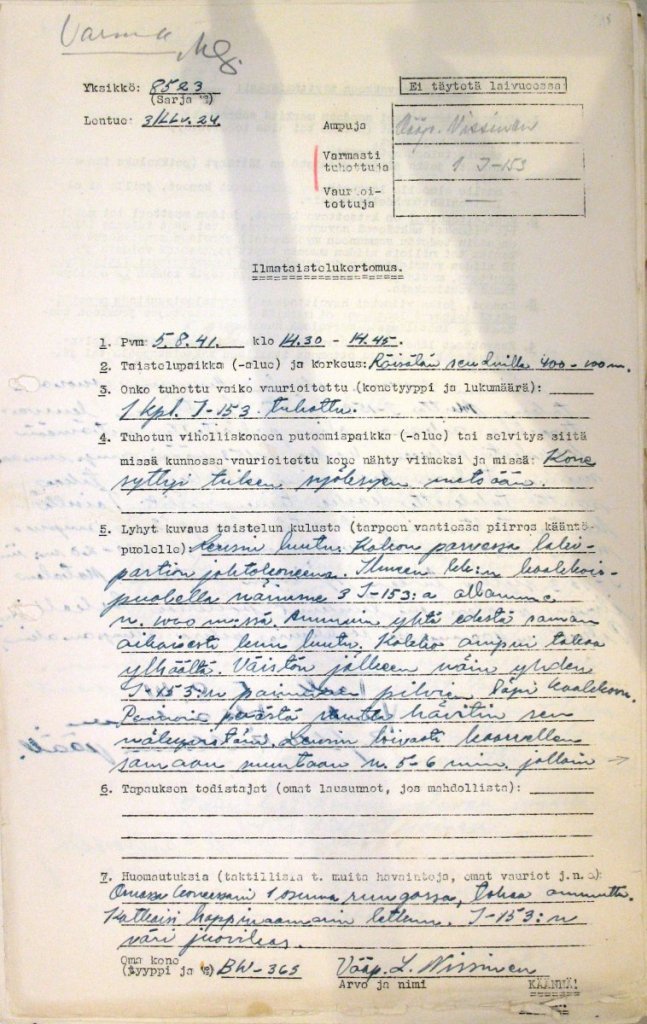 Varma
Yksikkö: 8523
(Sarja №)
Ei täytetä laivueessa:
Lentue: 3/LLv. 24
Ampuja Vääp. Nissinen
Varmasti
tuhottuja 1 I-153
Vaurioi-
tettuja
Ilmataistelukertomus.
1. Pvm 5.8.41. klo 14.30 - 14.45.
2. Taistelupaikka (-alue) ja korkeus: Räisälän seudulla 400-100 m.
3. Onko tuhottu vaiko vaurioitettu (konetyyppi ja lukumäärä):
1 kpl. I-153 tuhottu.
4. Tuhotun viholliskoneen putoamispaikka (-alue) tai selvitys siitä
missä kunnossa vaurioitettu kone nähty viimeksi ja missä: Kone
syttyi tuleen syöksyen metsään.
5. Lyhyt kuvaus taistelun kulusta (tarpeen vaatiessa piirros kääntö-
puolelle): Lensin luutn. Kokon parvessa laki-
partion johtokoneena. Ilmeen lak:n kaakkois-
puolella näimme 3 I-153:a allamme
n. 1000 m:ssä. Ammuin yhtä edestä saman
aikaisesti kun luutn. Kokko ampui takaa
ylhäältä. Väistön jälkeen näin yhden
I-153:n painuvan pilvien läpi kaakkoon.
päästä mutta hävitin sen
näkyvistäni. Lensin loivasti kaarrellen
samaan suuntaan n. 5-6 min. jolloin →
6. Tapauksen todistajat (omat lausunnot, jos mahdollista):
7. Huomautuksia (taktillisia t. muita havaintoja, omat vauriot j.n.e):
Omassa koneessani 1 osuma rungossa, takaa ammuttu.
Katkaisi happinaamarin letkun. I-153:n
väri juovikas.
Oma kone
(tyyppi ja №) BW-363 Vääp. L. Nissinen
Arvo ja nimi KÄÄNNÄ!